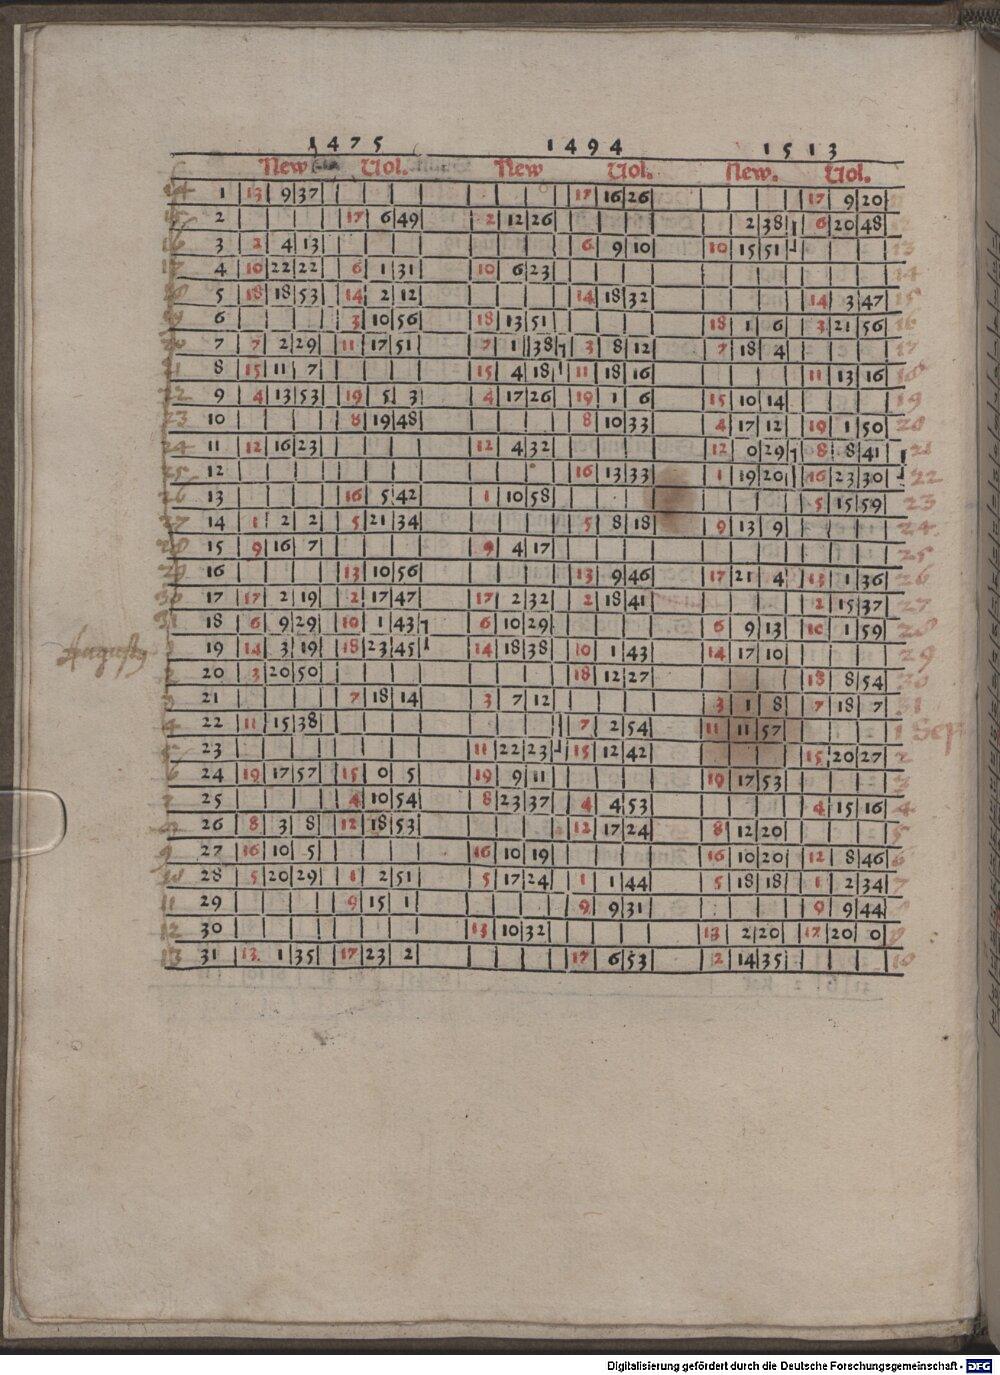 1475 1494 1513
New Vol. New Vol. New. Vol.
1 13 9 37 17 16 26 17 9 20
2 17 6 49 2 12 26 2 38 6 20 48
3 2 4 13 6 9 10 10 15 51 13
4 10 22 22 6 1 31 10 6 23 14
5 18 18 53 14 2 12 14 18 32 14 3 47 15
6 3 10 56 18 13 51 18 1 6 3 21 56 16
7 7 2 29 11 17 51 7 1 38 3 8 12 7 18 4 17
8 15 11 7 15 4 18 11 18 16 11 13 16 18
9 4 13 53 19 5 3 4 17 26 19 1 6 15 10 14 19
10 8 19 48 8 10 33 4 17 12 19 1 50 20
11 12 16 23 12 4 32 12 0 29 8 8 41 21
12 16 13 33 1 19 20 16 23 30 22
13 16 5 42 1 10 58 5 15 59 23
14 1 2 2 5 21 34 5 8 18 9 13 9 24
15 9 16 7 9 4 17 25
16 13 10 56 13 9 46 17 21 4 13 1 36 26
17 17 2 19 2 17 47 17 2 32 2 18 41 2 15 37 27
18 6 9 29 10 1 43 6 10 29 6 9 13 10 1 59 28
Augusty 19 14 3 19 18 23 45 14 18 38 10 1 43 14 17 10 29
20 3 20 50 18 12 27 18 8 54 30
21 7 18 14 3 7 12 3 1 8 7 18 7 31
22 11 15 38 7 2 54 11 11 57 1 Sep
23 11 22 23 15 12 42 15 20 27 2
24 19 17 57 15 0 5 19 9 11 19 17 53 3
25 4 10 54 8 23 37 4 4 53 4 15 16 4
26 8 3 8 12 18 53 12 17 24 8 12 20 5
27 16 10 5 16 10 19 16 10 20 12 8 46 6
28 5 20 29 1 2 51 5 17 24 1 1 44 5 18 18 1 2 34 7
29 9 15 1 9 9 31 9 9 44 8
30 13 10 32 13 2 20 17 20 0 9
31 13 1 35 17 23 2 17 6 53 2 14 35 10
Digitalisierung gefördert durch die Deutsche Forschungsgemeinschaft - DFG